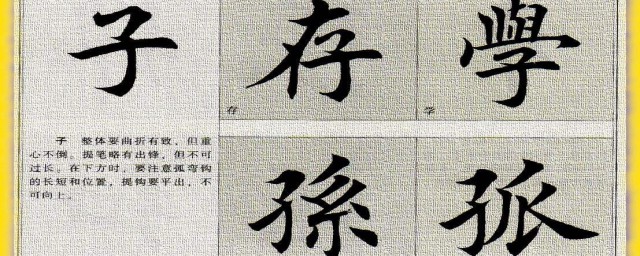 子 存 學
存 学
子 整体要曲折有致，但重
心不倒。提笔略有出锋，但不可
过长。在下方时，要注意弧弯钩
的长短和位置，提钩要平出，不
可向上。
孫 孤